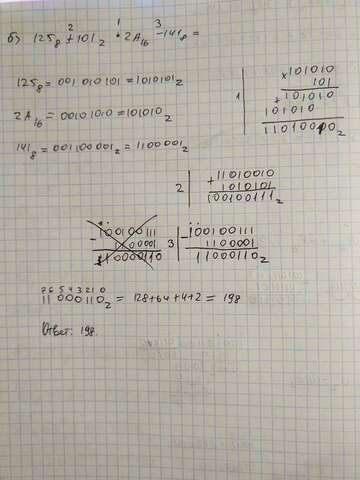 2 1 3
б) 125₈ + 101₂ * 2A₁₆ - 141₈ =
125₈ = 001 010 101 = 1010101₂
2A₁₆ = 0010 1010 = 101010₂
141₈ = 001100001₂ = 1100001₂
1
×101010
101
+101010
101010
11010010₂
2
+11010010
1010101
100100111₂
-100100111
1100001
110000110
3
-100100111
1100001
11000110₂
7 6 5 4 3 2 1 0
11000110₂ = 128+64+4+2 = 198
Ответ: 198.